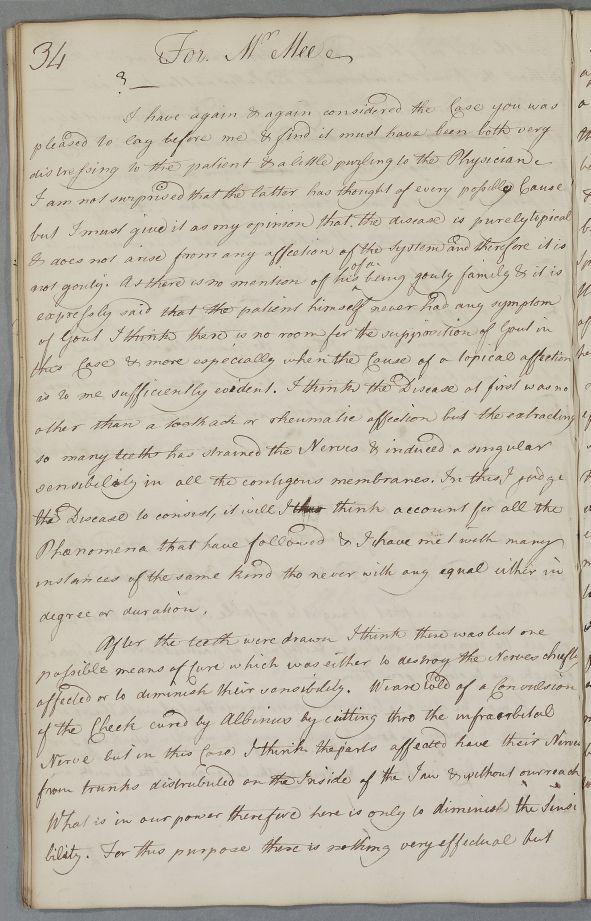 34 For. Mr Mee
I have again & again considered the Case you was
pleased to lay before me & find it must have been both very
distressing to the patient & a little puzling to the Physician
I am not surprised that the latter has thought of every possible Cause
but I must give it as my opinion that the disease is purely topical
& does not arise from any affection of the System and therefore it is
not gouty. As there is no mention of his being of a gouty family & it is
expressly said that the patient himself never had any symptom
of Gout I think there is no room for the supposition of Gout in
this Case & more especially when the Cause of a topical affection
is to me sufficiently evident. I think the Disease at first was no
other than a toothach or rheumatic affection but the extracting
so many teeth has strained the Nerves & induced a singular
sensibility in all the contigous membranes. In this I judge
the Disease to consist, it will I think account for all the
Phænomena that have followed & I have met with many
instances of the same kind tho never with any equal either in
degree or duration.
After the teeth were drawn I think there was but one
possible means of Cure which was either to destroy the Nerves chiefly
affected or to diminish their sensibility. We are told of a Convulsion
of the Cheek cured by Albinus by cutting thro the infraorbital
Nerve but in this Case I think the parts affected have their Nerves
from trunks distrubuted on the Inside of the Jaw & without our reach
What is in our power therefore here is only to diminish the Sensi
bility. For this purpose there is nothing very effectual but